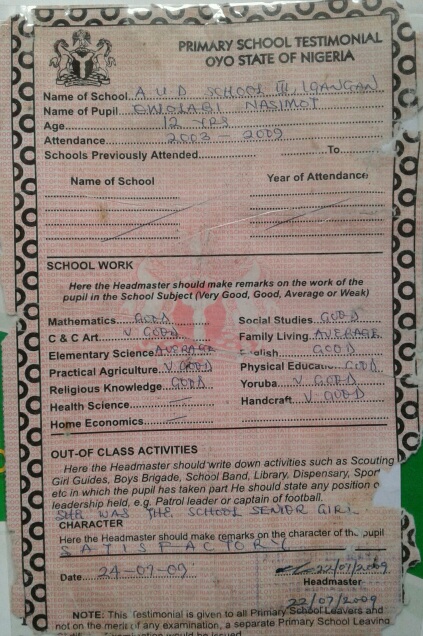 PRIMARY SCHOOL TESTIMONIAL
OYO STATE OF NIGERIA
Name of School A U D SCHOOL III, IGANGAN
Name of Pupil OWOLABI NASIMOT
Age 12 YRS
Attendance 2003 - 2009
Schools Previously Attended To
Name of School Year of Attendance
SCHOOL WORK
Here the Headmaster should make remarks on the work of the
pupil in the School Subject (Very Good, Good, Average or Weak)
Mathematics GOOD Social Studies GOOD
C & C Art V GOOD Family Living AVERAGE
Elementary Science AVERAGE glish GOOD
Practical Agriculture V GOOD Physical Educatio GOOD
Religious Knowledge GOOD Yoruba V GOOD
Health Science Handcraft V GOOD
Home Economics
OUT-OF CLASS ACTIVITIES
Here the Headmaster should write down activities such as Scouting
Girl Guides, Boys Brigade, School Band, Library, Dispensary, Spor
etc in which the pupil has taken part He should state any position o
leadership held, e.g. Patrol leader or captain of football.
SHE WAS THE SCHOOL SENIOR GIRL
CHARACTER
Here the Headmaster should make remarks on the character of the pupil
SATISFACTORY
Date 24-07-09 22/07/2009
Headmaster
22/07/2009
NOTE: This Testimonial is given to all Primary School Leavers and
not on the merit of any examination, a separate Primary School Leaving